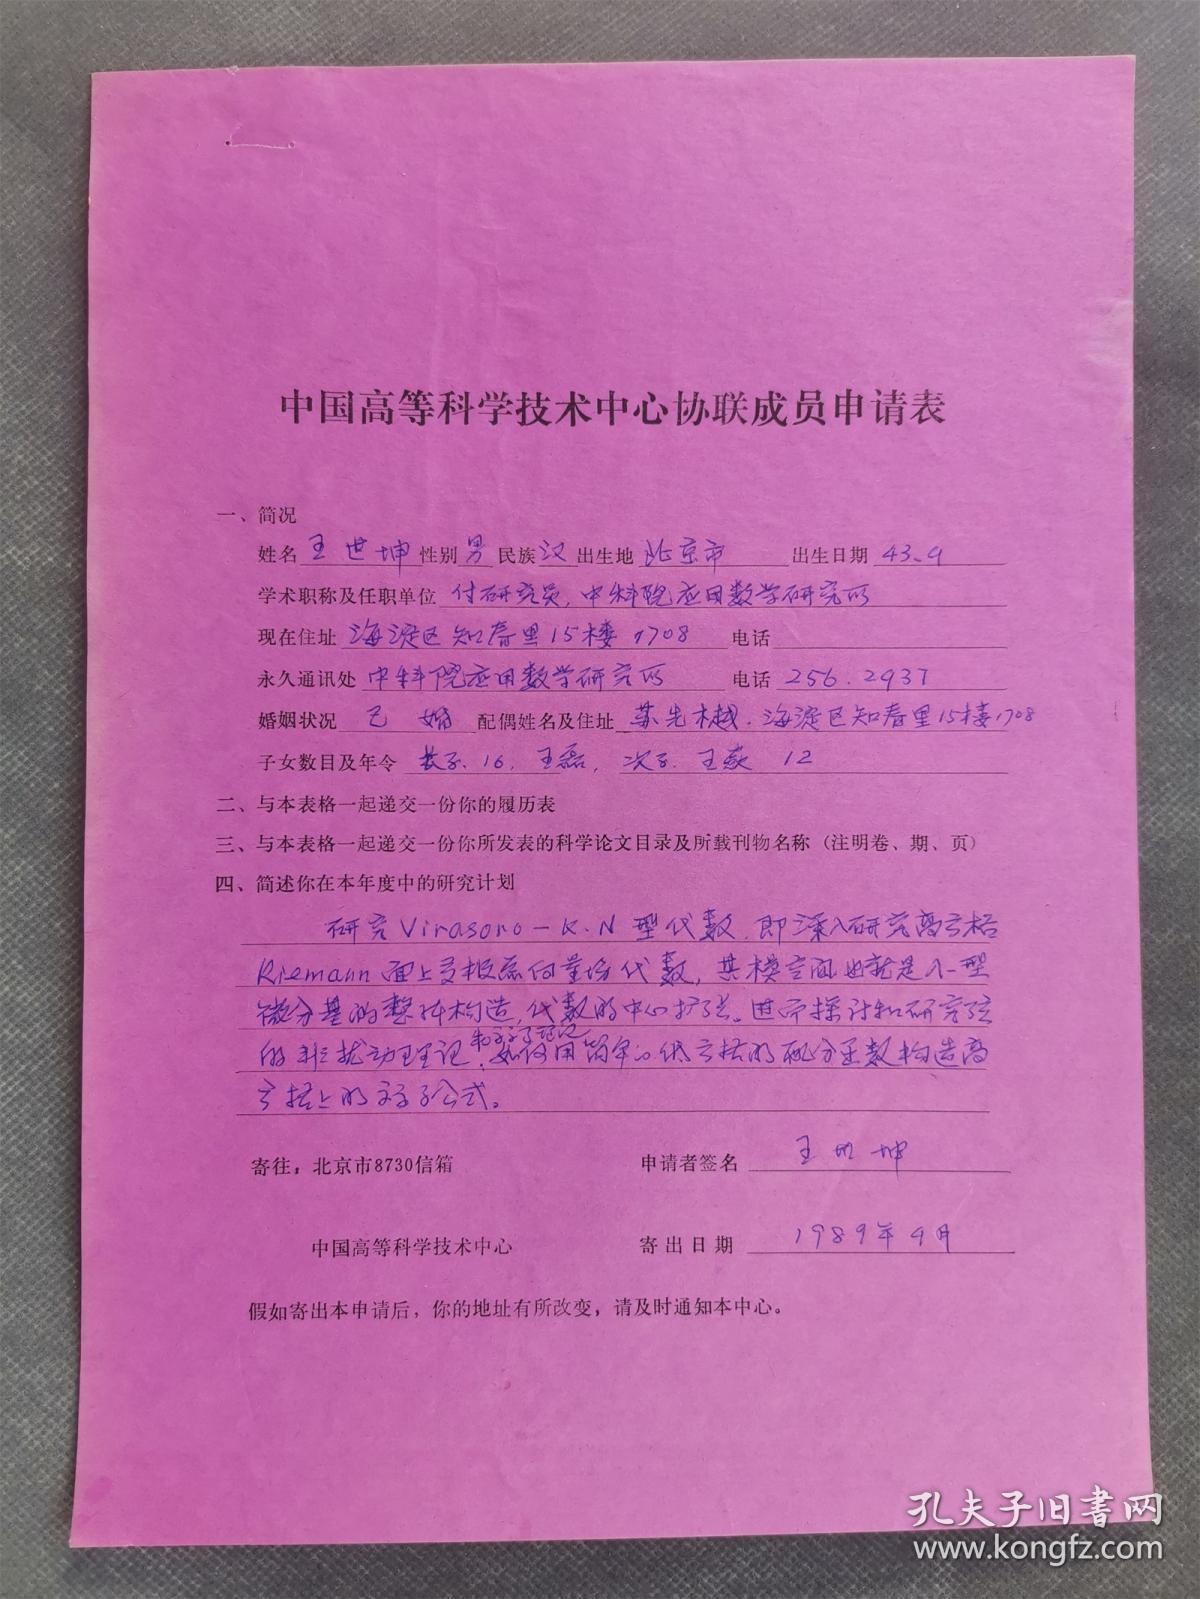 中国高等科学技术中心协联成员申请表
一、简况
姓名 王世坤 性别 男 民族 汉 出生地 北京市 出生日期 43.9
学术职称及任职单位 付研究员,中科院应用数学研究所
现在住址 海淀区知春里15楼1708 电话
永久通讯处 中科院应用数学研究所 电话 256.2937
婚姻状况 已婚 配偶姓名及住址 苏先樾.海淀区知春里15楼1708
子女数目及年令 长子、16,王磊,次子.王 12
二、与本表格一起递交一份你的履历表
三、与本表格一起递交一份你所发表的科学论文目录及所载刊物名称(注明卷、期、页)
四、简述你在本年度中的研究计划
研究Virasoro-K.N型代数.即深入研究高亏格
Riemann面上亚纯向量场代数,其模空间也就是λ-型
微分基的整体构造,代数的中心扩张。进而探讨和研究弦
的非扰动理论.如何用简单的低亏格的配分函数构造高
亏格上的算子公式。
寄往:北京市8730信箱 申请者签名 王世坤
中国高等科学技术中心 寄出日期 1989年9月
假如寄出本申请后,你的地址有所改变,请及时通知本中心。
孔夫子旧书网
www.kongfz.com